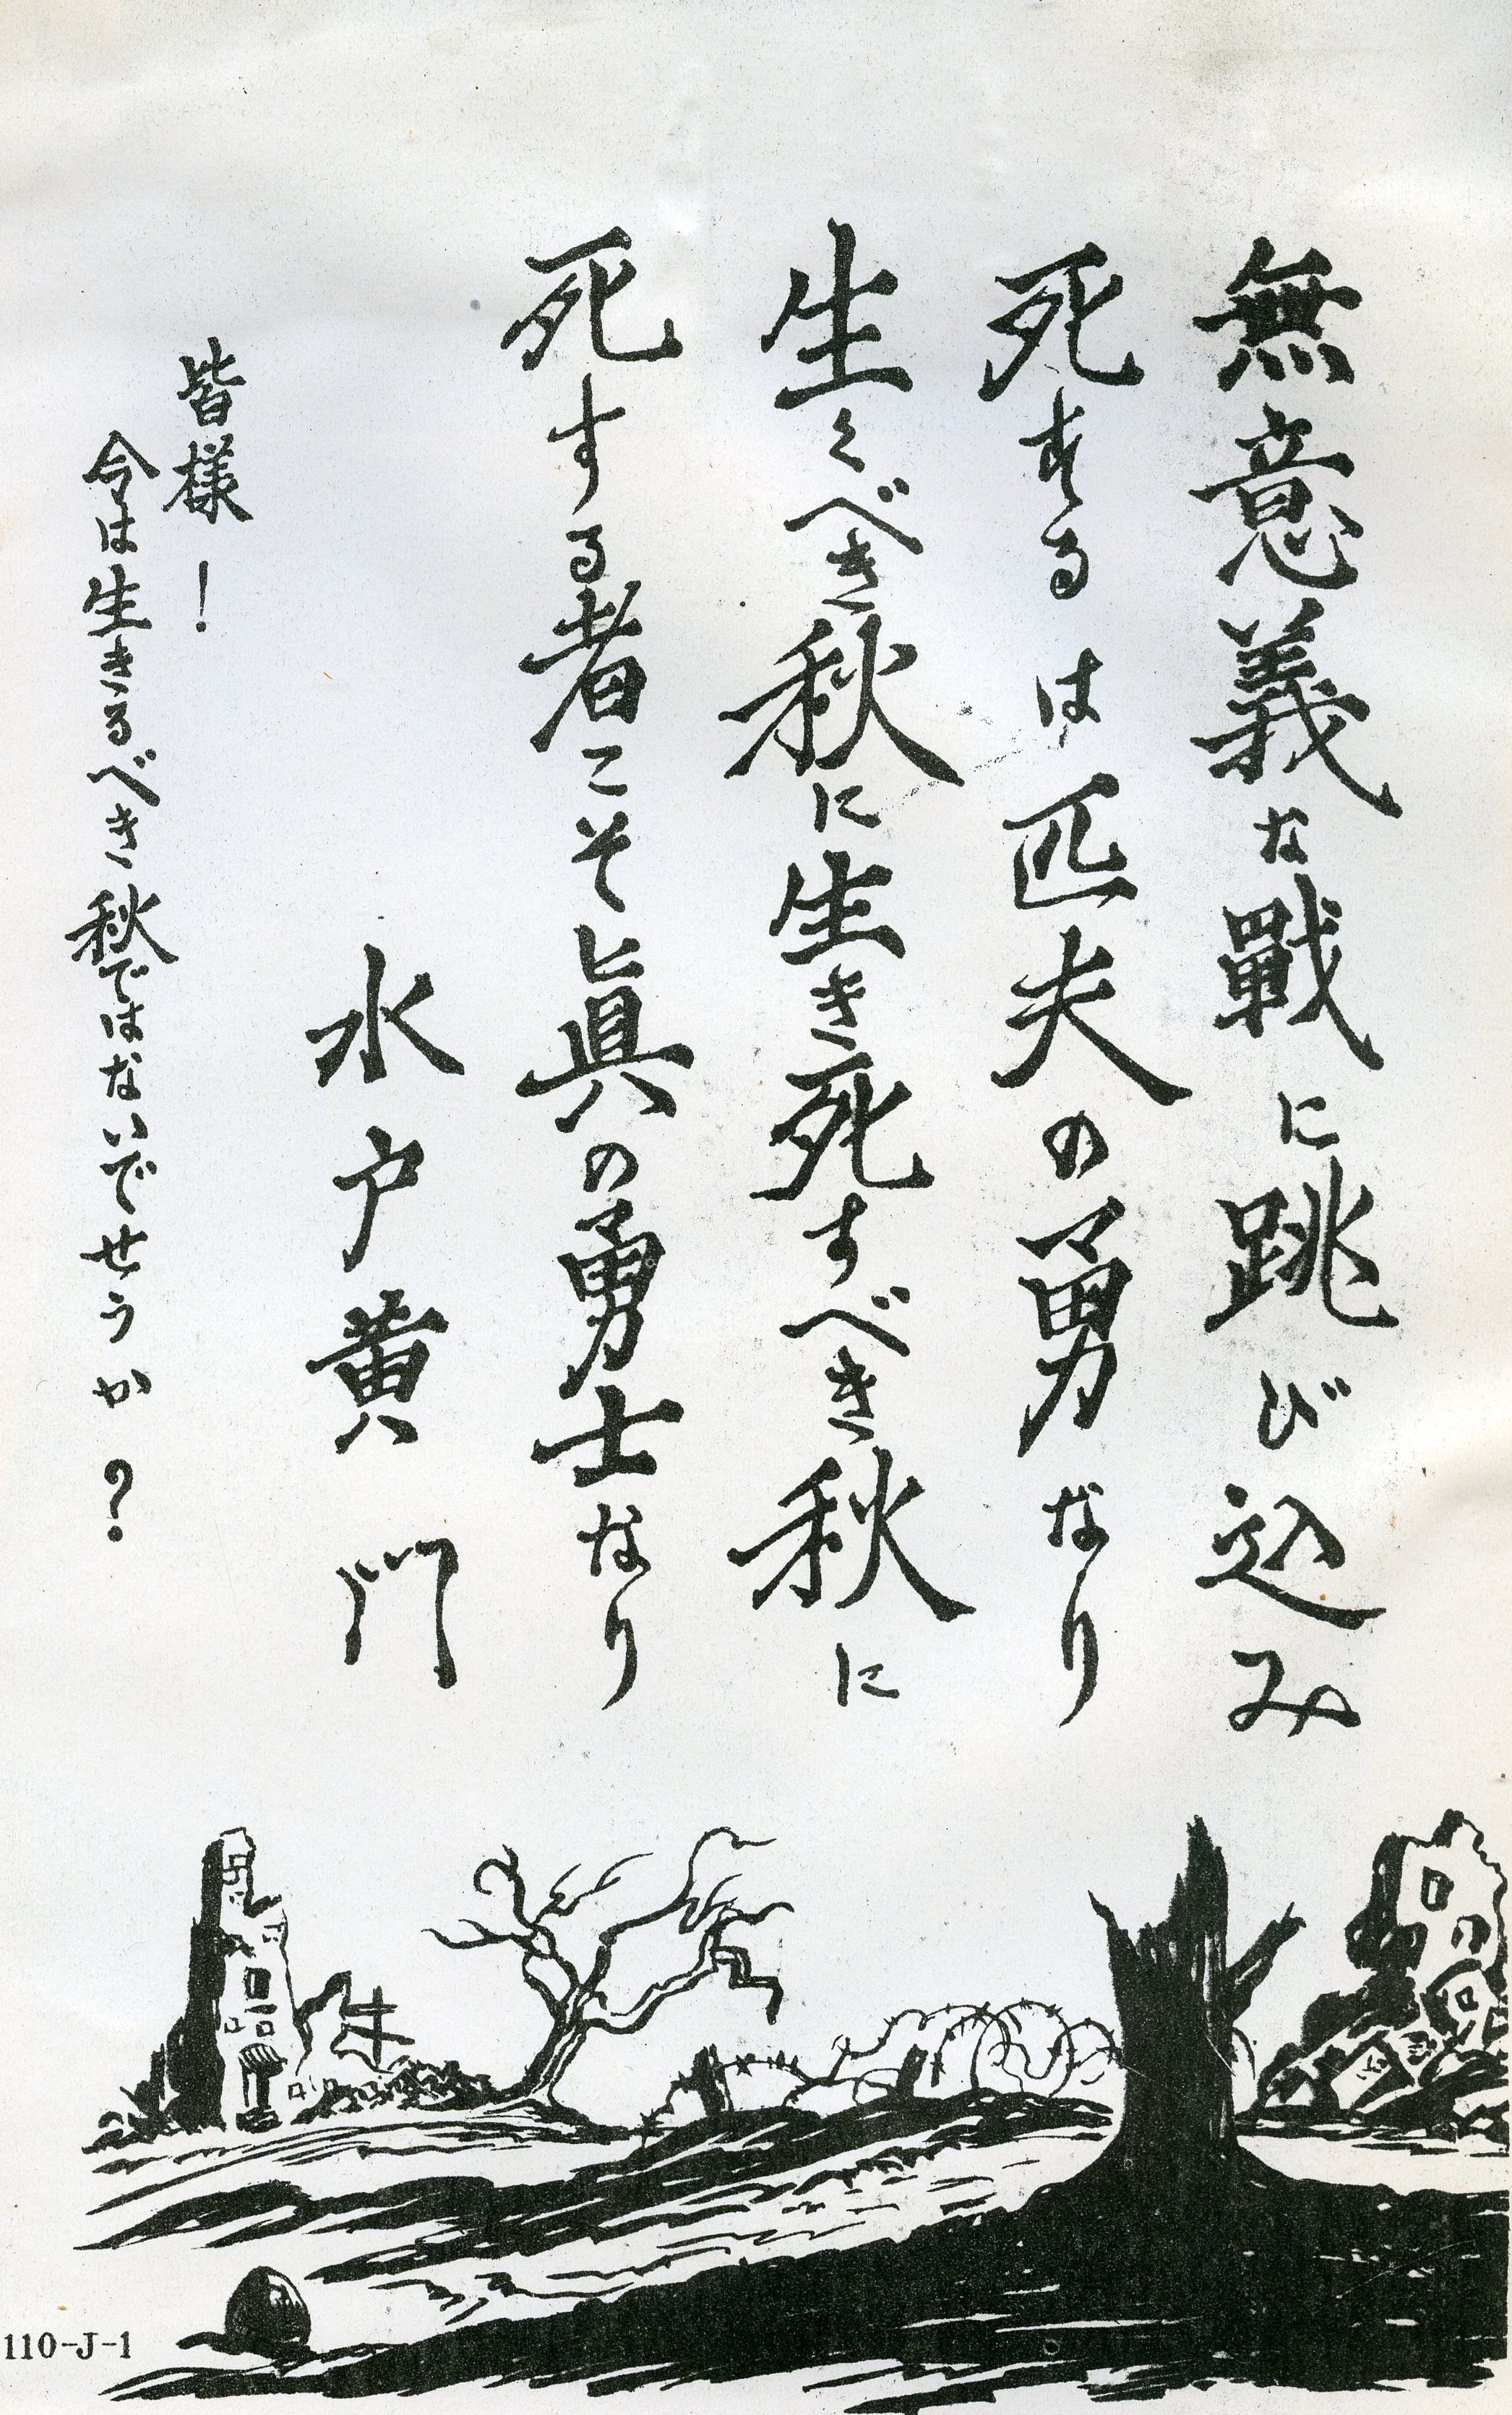 無意義な戰に跳び込み
死するは匹夫の勇なり
生くべき秋に生き死すべき秋に
死する者こそ眞の勇士なり
水戸黄門
皆様！
今は生きるべき秋ではないでせうか？
110-J-1